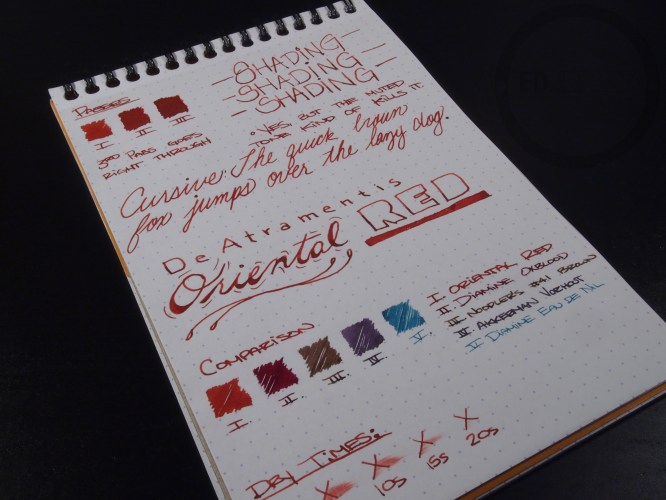 -SHADING-
-SHADING-
-SHADING-
PASSES
I II III
3RD PASS GOES
RIGHT THROUGH
• YES, BUT THE MUTED
TONE KIND OF KILLS IT
Cursive: The quick brown
fox jumps over the lazy dog.
De Atramentis
Oriental RED
COMPARISON
I. II. III. IV. V.
I. ORIENTAL RED
II. DIAMINE OXBLOOD
III. NOODLER'S #41 BROWN
IV. AKKERMAN VOORHOUT
V. DIAMINE EAU DE NIL
DRY TIMES:
10s 15s 20s